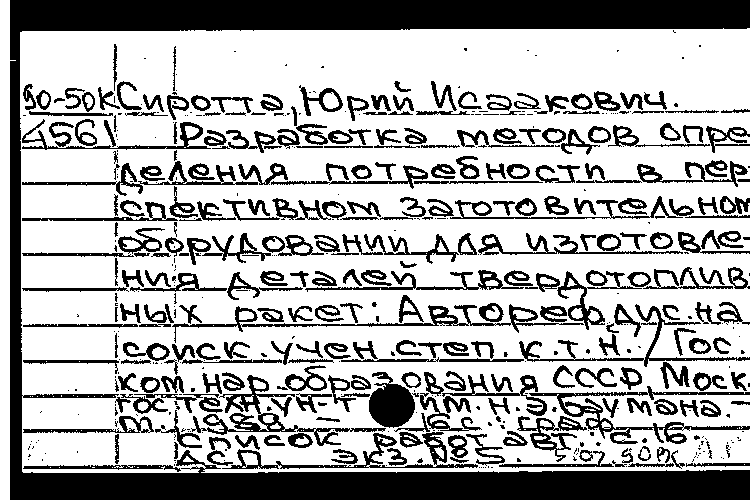 90-50К Сиротта, Юрий Исаакович.
4561 Разработка методов опре-
деления потребности в пер-
спективном заготовительном
оборудовании для изготовле-
ния деталей твердотоплив-
ных ракет: Автореф. дис. на
соиск. учен. степ. к.т.н. / Гос.
ком. нар. образования СССР, Моск.
гос. техн. ун-т им. Н.Э. Баумана. -
М., 1989. - 16 с.: граф.
Список работ авт.: с. 16.
ДСП. Экз. № 5.